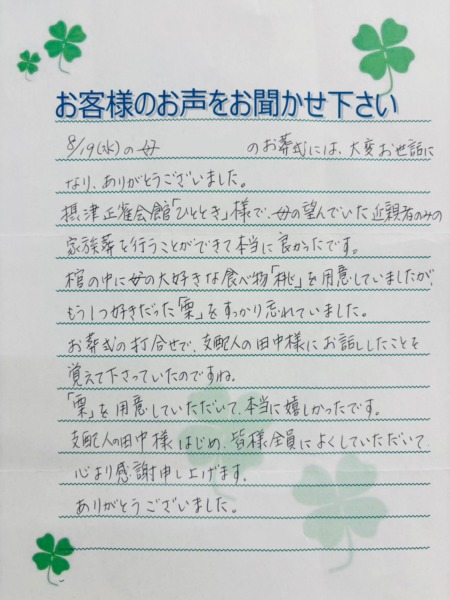 お客様のお声をお聞かせ下さい
8/19(水)の母 のお葬式には、大変お世話に
なり、ありがとうございました。
摂津正雀会館「ひととき」様で、母の望んでいた近親者のみの
家族葬を行うことができて本当に良かったです。
棺の中に母の大好きな食べ物「桃」を用意していましたが、
もう1つ好きだった「栗」をすっかり忘れていました。
お葬式の打合せで、支配人の田中様にお話ししたことを
覚えて下さっていたのですね。
「栗」を用意していただいて、本当に嬉しかったです。
支配人の田中様はじめ、皆様全員によくしていただいて、
心より感謝申し上げます。
ありがとうございました。